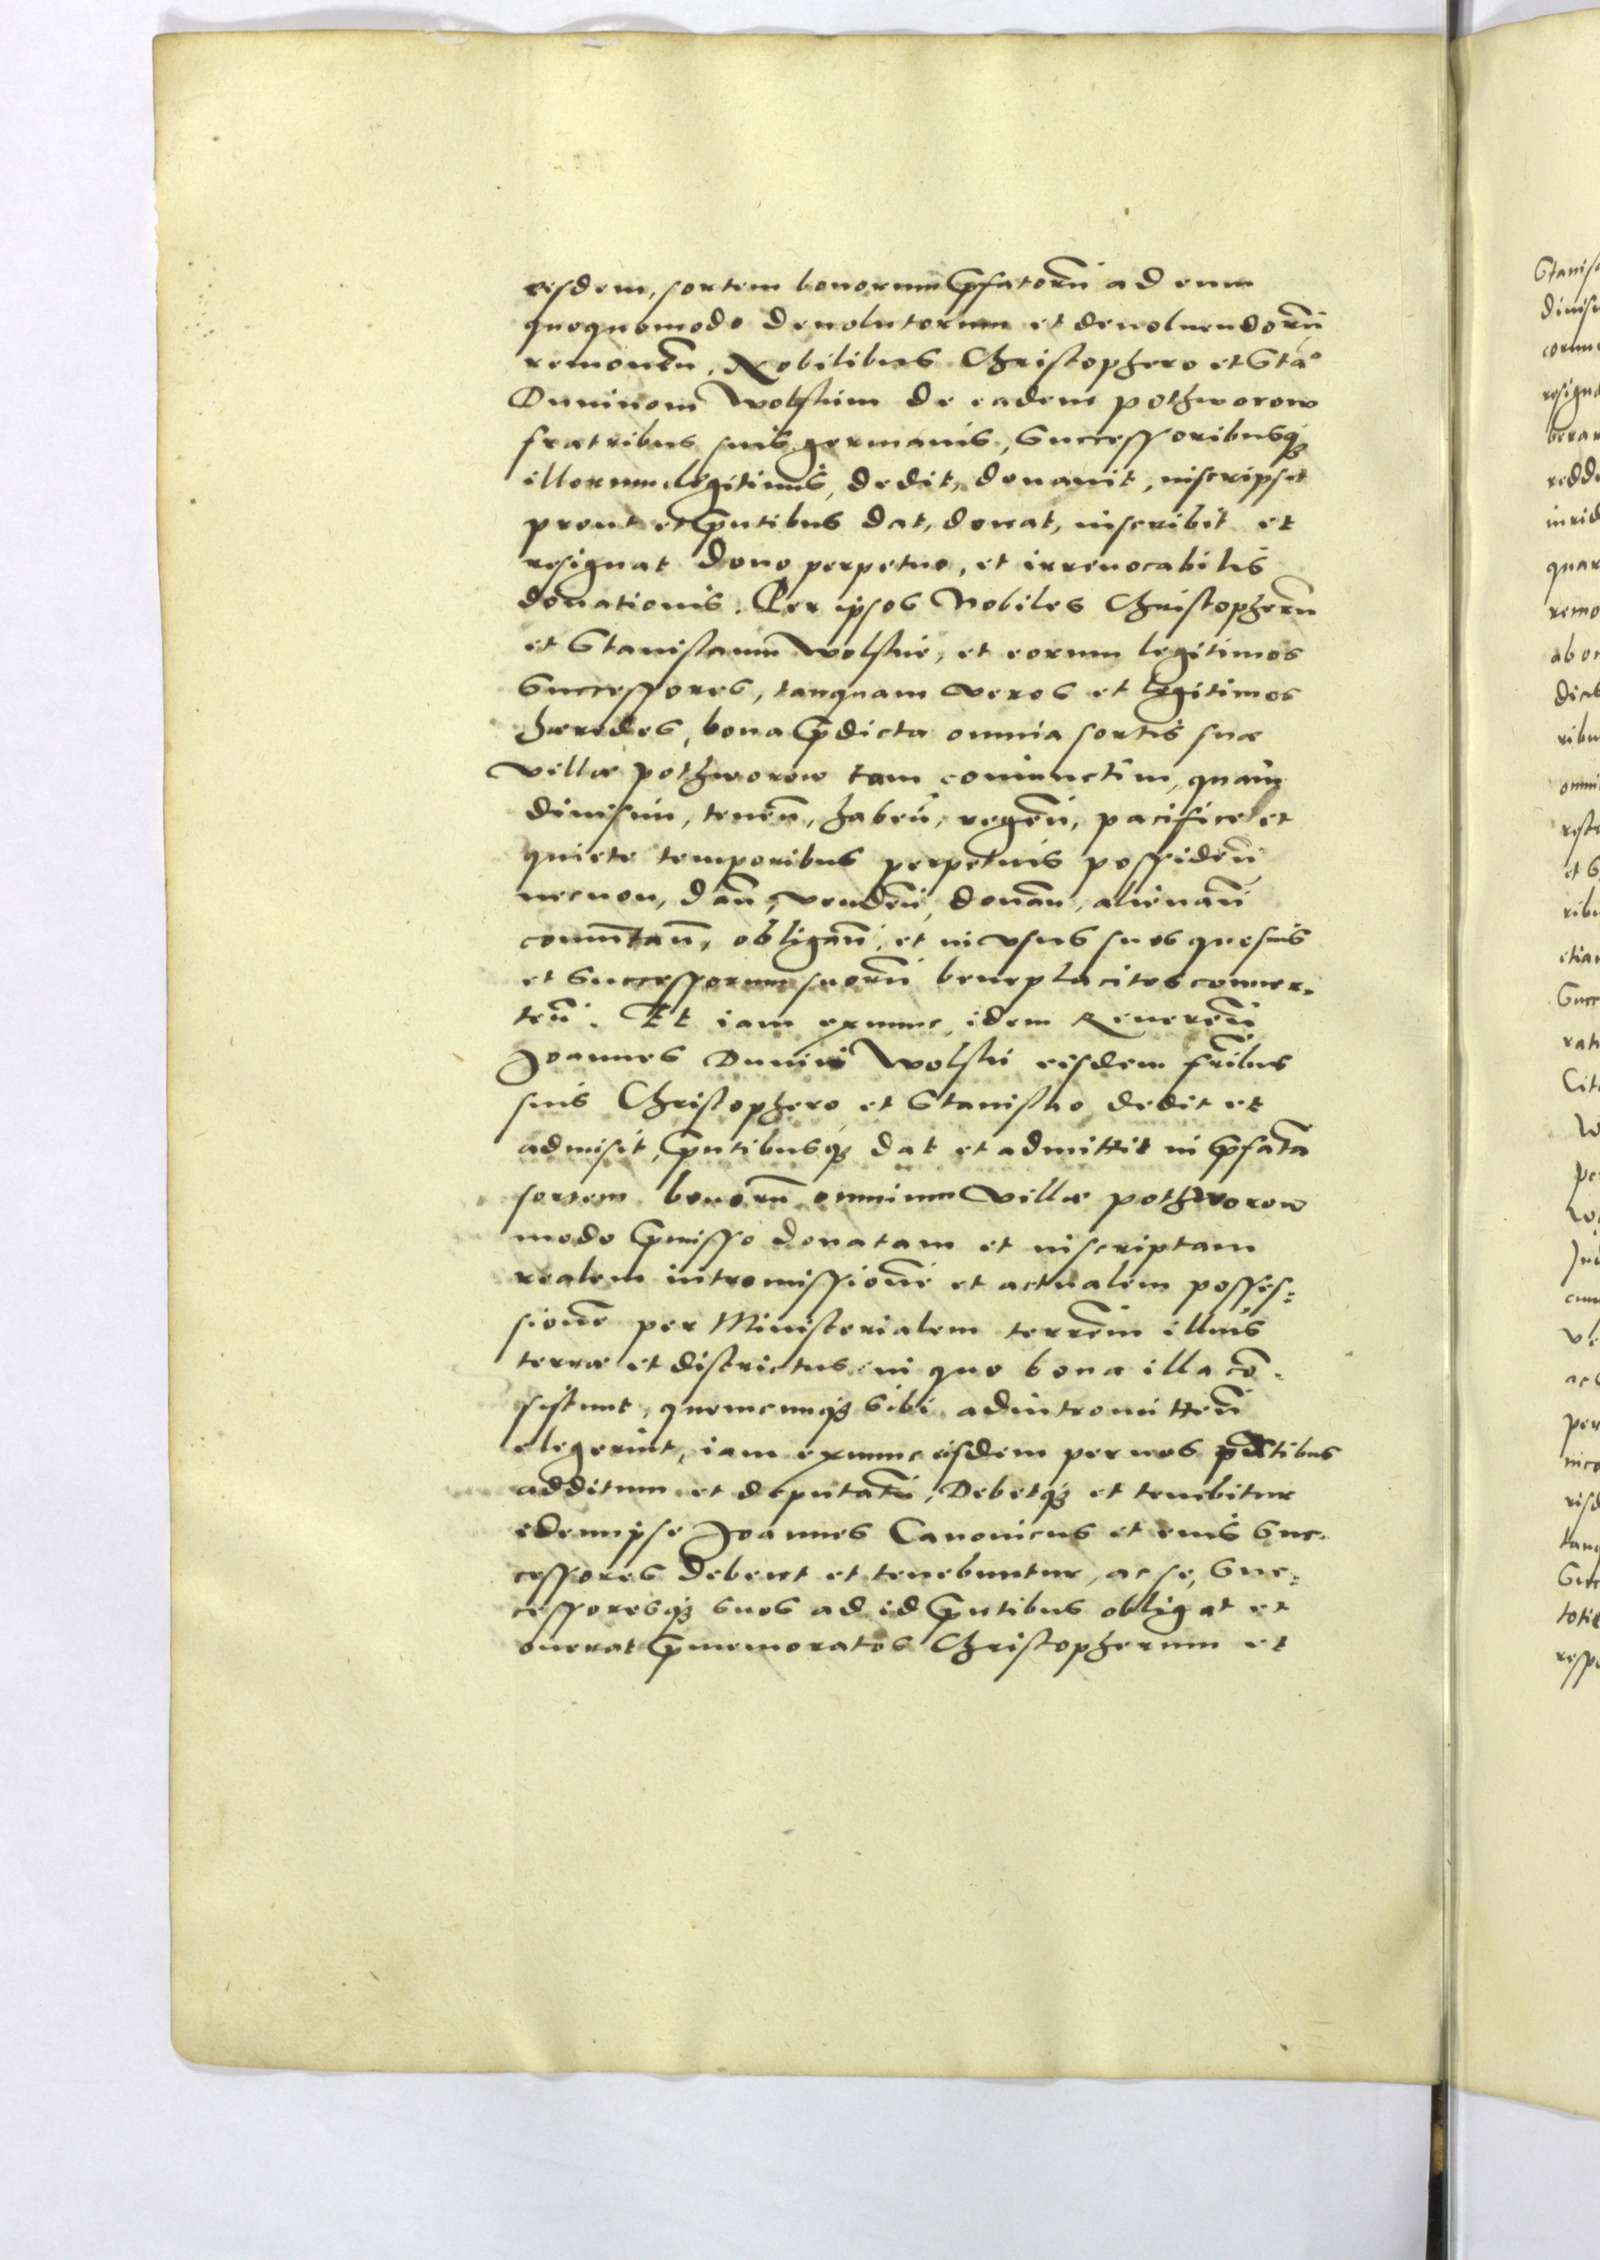 eisdem, sortem bonorum p̃fatorũ ad eum
quoquomodo deuolutorum et deuoluendorũ
remouen̄, Nobilibus Christophero et Sta°
Duninom Wolskim de eadem pothworow
fratribus suis germanis, Successoribusq₃
illorum legitimis, dedit, donauit, inscripsit
prout et p̃ntibus dat, donat, inscribit et
resignat dono perpetuo, et irreuocabilis
donationis. Per ipsos Nobiles Christopherũ
et Stanislaum Wolskie, et eorum legitimos
Successores, tanquam veros et legitimos
hæredes, bona p̃dicta omnia sortis suæ
villæ pothworow tam coniunctim, quam
diuisim, tenen̄, haben̄, regen̄, pacifice et
quiete temporibus perpetuis possiden̄
necnon, dan̄, venden̄, donan̄, alienan̄
com̄utan̄, obligan̄, et in vsus suos quosuis
et Successorum suorũ beneplacitos conuer-
ten̄. Et iam exnunc, idem Reueren̄
Joannes Dunin Wolski eisdem fr̃ibus
suis Christophero et Stanislao dedit et
admisit, p̃ntibusq₃ dat et admittit in p̃fatã
sortem bonorũ omnium villæ pothworow
modo p̃misso donatam et inscriptam
realem intromissionẽ et actualem posses=
sionẽ per Ministerialem terrẽm illius
terræ et districtus in quo bona illa cõ-
sistunt, quemcunq₃ sibi adintromitten̄
elegerint, iam exnunc eisdem per nos p̃ntibus
additum et deputatũ, Debetq₃ et tenebitur
idem ipse Joannes Canonicus et eius Suc-
cessores debent et tenebuntur, ac se, Suc=
cessoresq₃ suos ad id p̃ntibus obligat et
onerat p̃memoratos Christopherum et